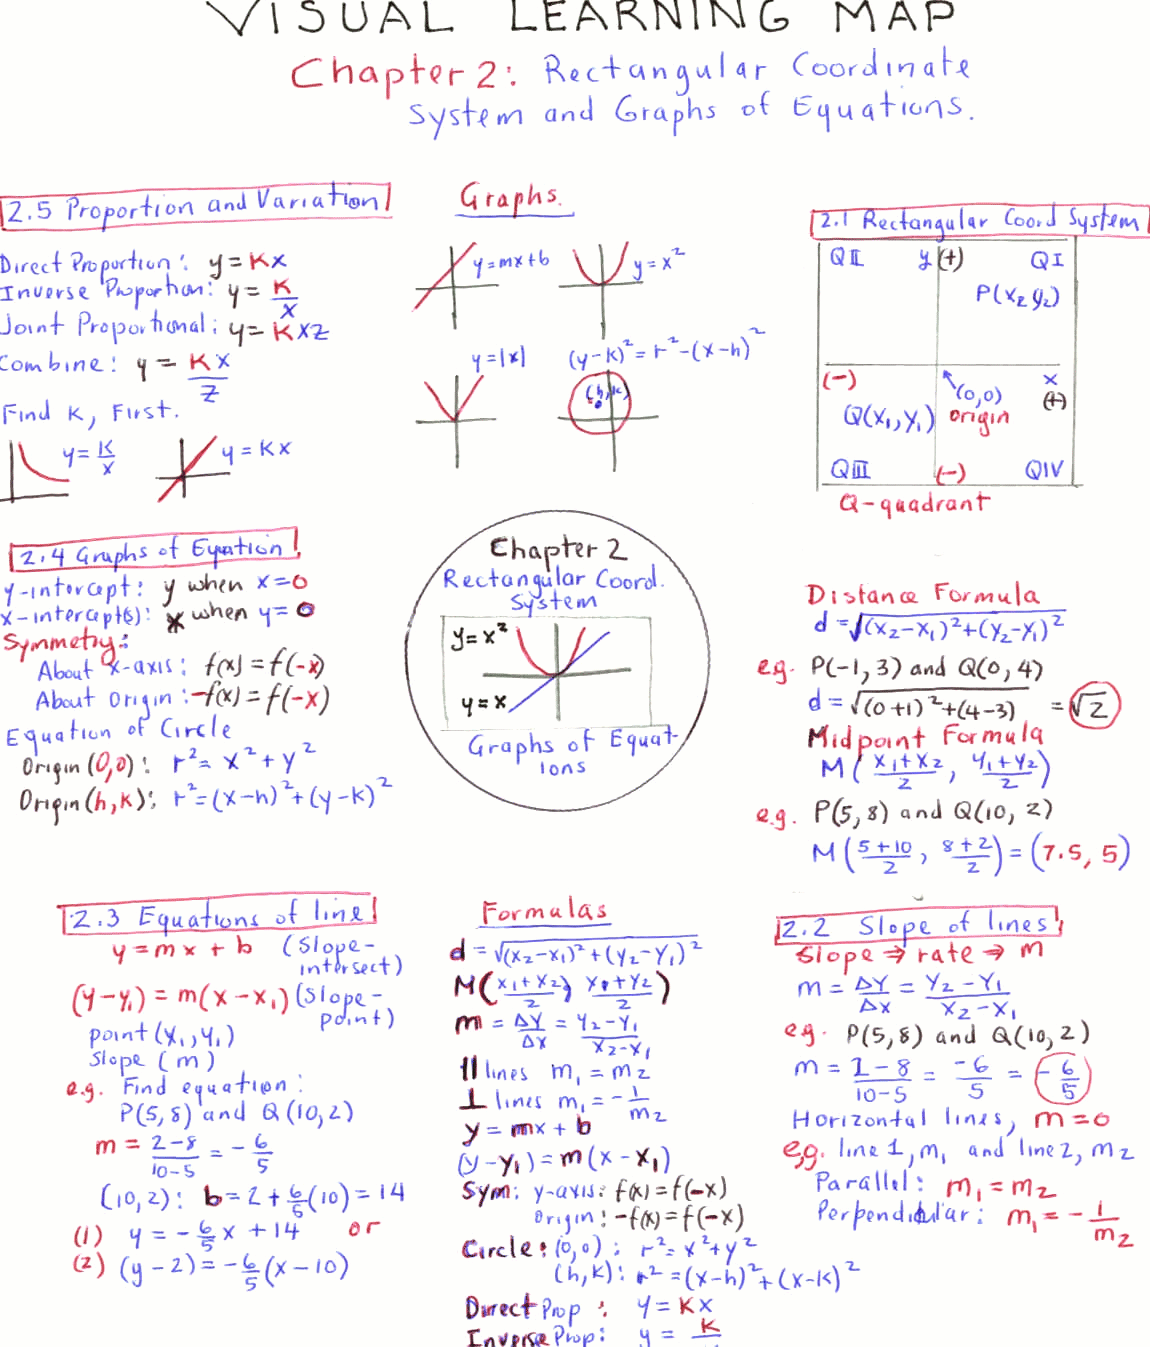 VISUAL LEARNING MAP
Chapter 2: Rectangular Coordinate
System and Graphs of Equations.
2.5 Proportion and Variation
Direct Proportion: y = Kx
Inverse Proportion: y = K/x
Joint Proportional: y = Kxz
Combine: y = Kx/z
Find K, First.
y = K/x
y = Kx
Graphs.
y = mx+b
y = x²
y = |x|
(y-k)² = r² - (x-h)²
(h,k)
2.1 Rectangular Coord System
QII y (+) QI
P(x₂ y₂)
(-) x
(0,0) (+)
Q(x₁, y₁) origin
QIII (-) QIV
Q-quadrant
2.4 Graphs of Equation
y-intercept: y when x=0
x-intercept(s): x when y=0
Symmetry:
About x-axis: f(x) = f(-x)
About Origin: -f(x) = f(-x)
Equation of Circle
Origin (0,0): r² = x² + y²
Origin (h,k): r² = (x-h)² + (y-k)²
Chapter 2
Rectangular Coord.
System
y = x²
y = x
Graphs of Equat-
ions
Distance Formula
d = √(x₂-x₁)²+(y₂-y₁)²
e.g. P(-1, 3) and Q(0, 4)
d = √(0+1)²+(4-3) = √2
Midpoint Formula
M( x₁+x₂/2 , y₁+y₂/2 )
e.g. P(5, 8) and Q(10, 2)
M( 5+10/2 , 8+2/2 ) = (7.5, 5)
2.3 Equations of line
y = mx + b (Slope-
intersect)
(y-y₁) = m(x-x₁) (Slope-
point)
point(x₁, y₁)
Slope (m)
e.g. Find equation:
P(5,8) and Q(10,2)
m = 2-8/10-5 = -6/5
(10, 2): b = 2 + 6/5(10) = 14
(1) y = -6/5 x + 14 or
(2) (y-2) = -6/5(x-10)
Formulas
d = √(x₂-x₁)²+(y₂-y₁)²
M( x₁+x₂/2 ) x₁+y₂/2 )
m = ΔY/Δx = y₂-y₁/x₂-x₁
|| lines m₁ = m₂
⊥ lines m₁ = -1/m₂
y = mx + b
(y-y₁) = m(x-x₁)
Sym: y-axis: f(x) = f(-x)
Origin: -f(x) = f(-x)
Circle: (0,0): r² = x²+y²
(h,k): r² = (x-h)² + (x-k)²
Direct Prop : y = Kx
Inverse Prop: y = K
2.2 Slope of lines
Slope → rate → m
m = ΔY/Δx = y₂-y₁/x₂-x₁
e.g. P(5,8) and Q(10,2)
m = 2-8/10-5 = -6/5 = -6/5
Horizontal lines, m=0
e.g. line 1, m₁ and line 2, m₂
Parallel: m₁ = m₂
Perpendicular: m₁ = -1/m₂